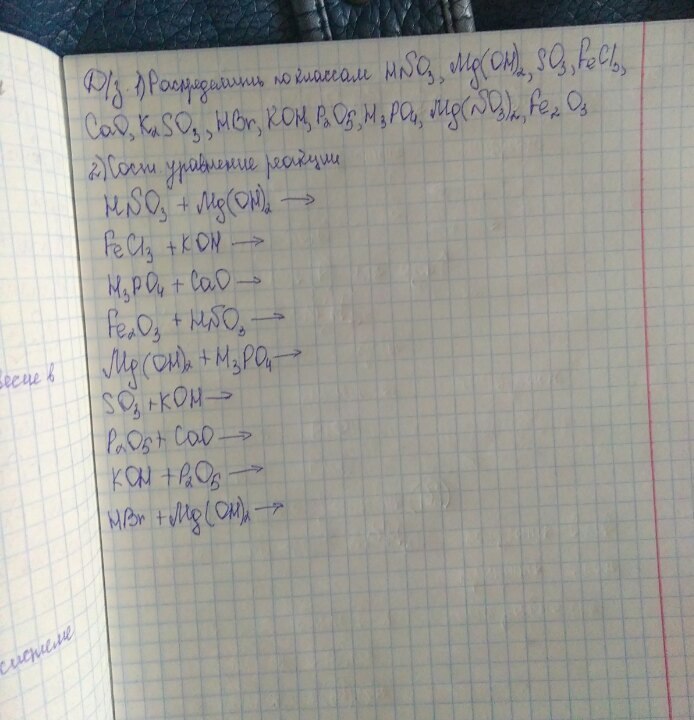 Д/з. 1) Распределить по классам HNO₃, Mg(OH)₂, SO₃, FeCl₃,
CaO, K₂SO₃, HBr, KOH, P₂O₅, H₃PO₄, Mg(NO₃)₂, Fe₂O₃
2) Сост уравнение реакции
HNO₃ + Mg(OH)₂ →
FeCl₃ + KOH →
H₃PO₄ + CaO →
Fe₂O₃ + HNO₃ →
Mg(OH)₂ + H₃PO₄ →
SO₃ + KOH →
P₂O₅ + CaO →
KOH + P₂O₅ →
HBr + Mg(OH)₂ →
системе